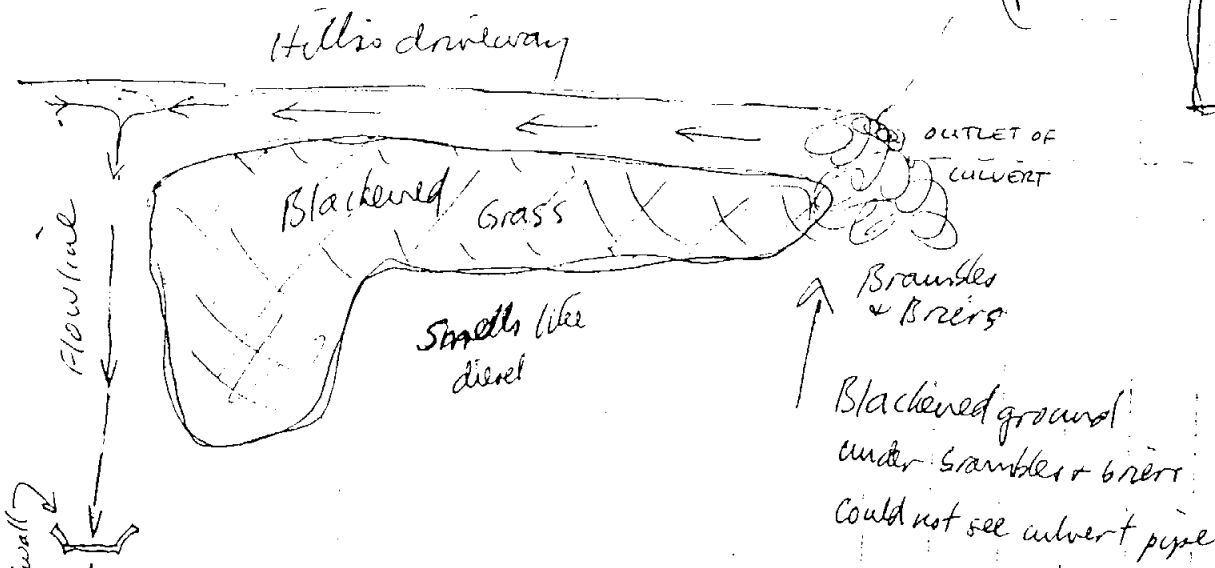 Hillis driveway
OUTLET OF
CULVERT
Blackened Grass
Flowline
Smells like
diesel
Brambles
& Briers
Blackened ground
under brambles & briers
Could not see culvert pipe
wall